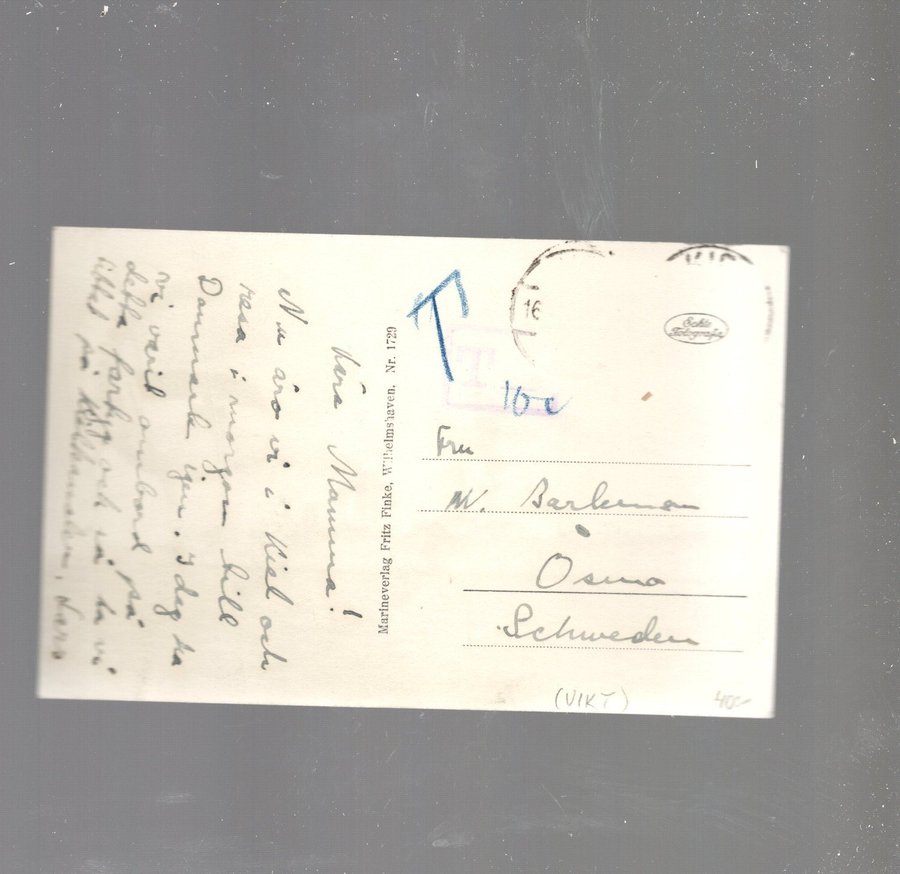 Kära Mamma!
Nu äro vi i Kiel och
resa i morgon till
Danmark igen. I dag ha
vi varit ombord på
detta fartyg och så ha vi
tittat på Lars
Marineverlag Fritz Finke, Wilhelmshaven. Nr. 1729
T
T
10 c
16
Echte
Fotografie
Fru
W. Barkman
Ösmo
Schweden
(VIKT)